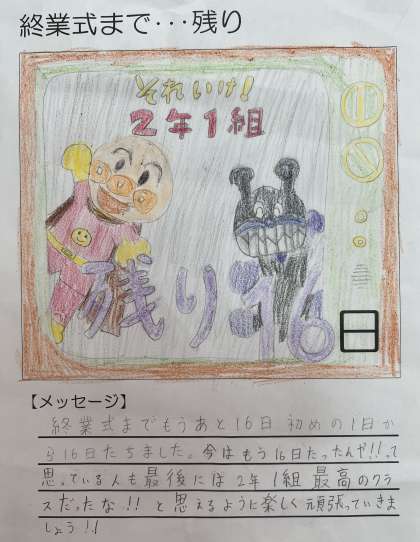 終業式まで･･･残り
それいけ！
２年１組
残り：１６
日
【メッセージ】
終業式までもうあと１６日 初めの１日か
ら１６日たちました。今はもう１６日たったんや!!って
思っている人も最後には２年１組 最高のクラ
スだったな!!と思えるように楽しく頑張っていきま
しょう!!